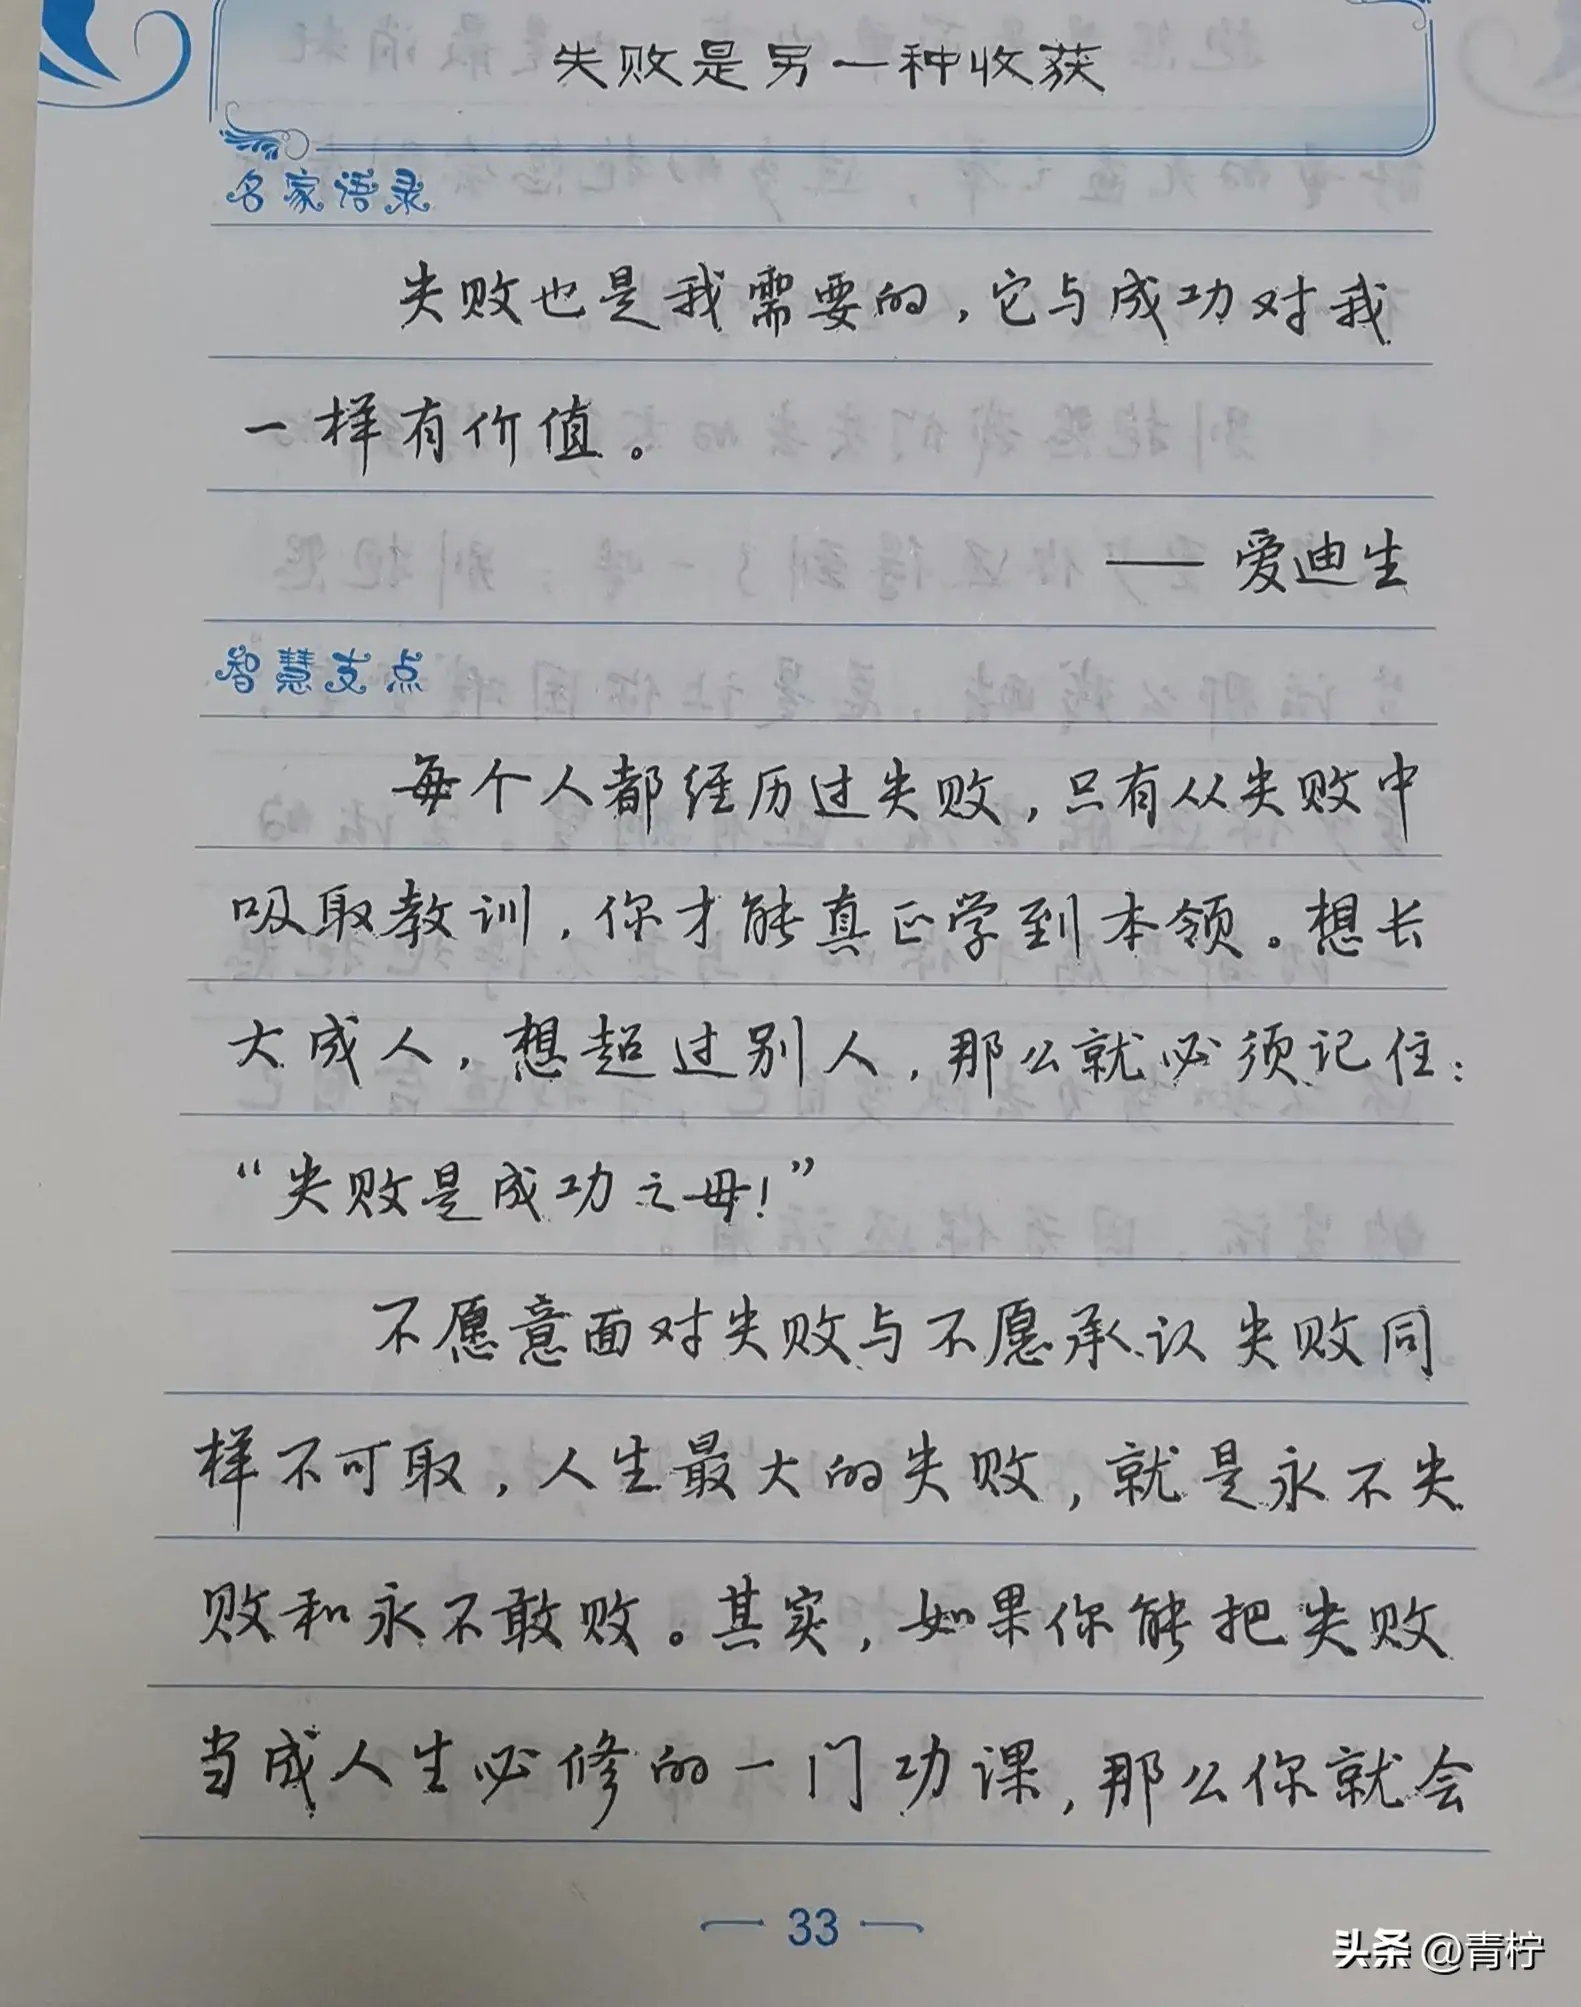 失败是另一种收获
名家语录
失败也是我需要的，它与成功对我
一样有价值。
——爱迪生
智慧支点
每个人都经历过失败，只有从失败中
吸取教训，你才能真正学到本领。想长
大成人，想超过别人，那么就必须记住：
“失败是成功之母！”
不愿意面对失败与不愿承认失败同
样不可取，人生最大的失败，就是永不失
败和永不敢败。其实，如果你能把失败
当成人生必修的一门功课，那么你就会
33
头条 @青柠